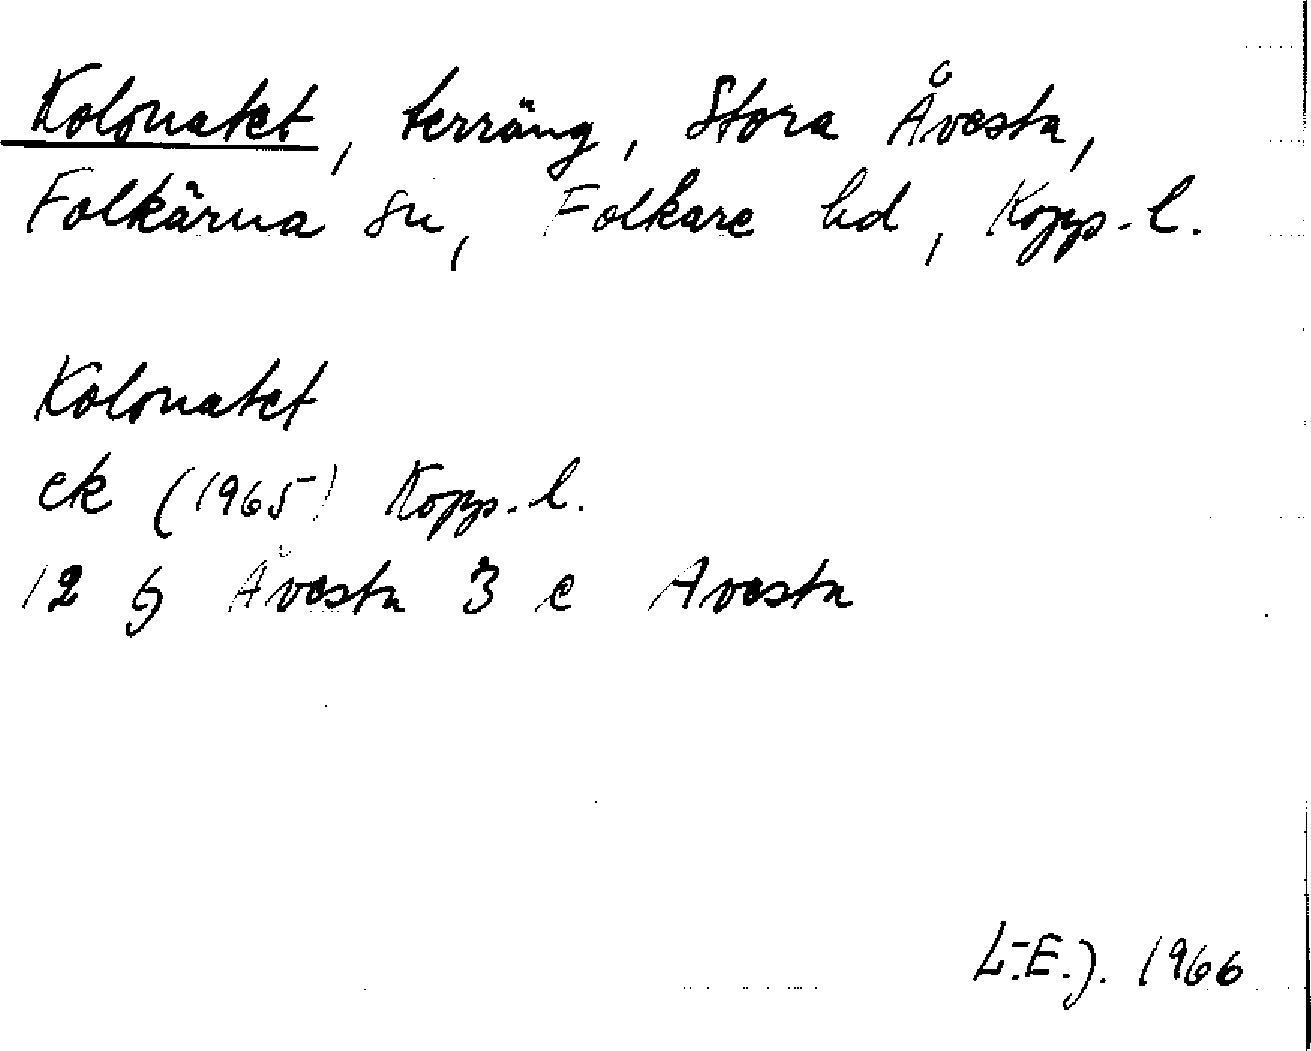 Kolonatet, terräng, Stora Åvesta,
Folkärna sn, Folkare hd, Kopp. l.
Kolonatet
ek (1965) Kopp. l.
12 G Åvesta 3 c Avesta
L.-E. J. 1966